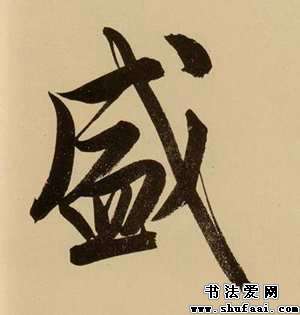 盛
书法爱网
www.shufaai.com